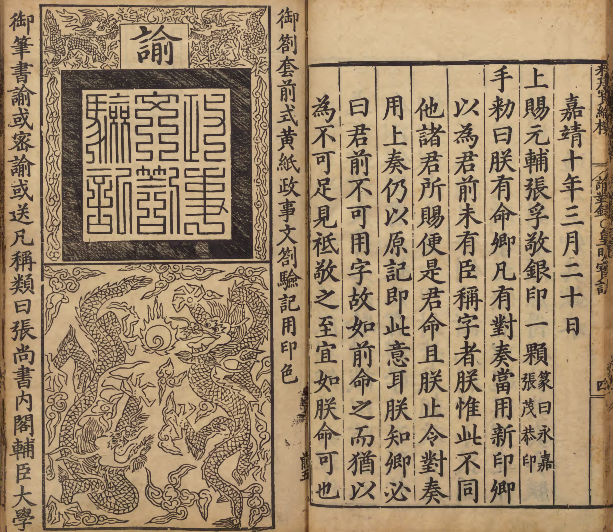 嘉靖十年三月二十日
上賜元輔張孚敬銀印一顆
篆曰永嘉
張茂恭印
手勑曰朕有命卿凡有對奏當用新印卿
以為君前未有臣稱字者朕惟此不同
他諸君所賜便是君命且朕止令對奏
用上奏仍以原記即此意耳朕知卿必
曰君前不可用字故如前命之而猶以
為不可足見祗敬之至宜如朕命可也
御劄套前式黃紙政事文劄驗記用印色
諭
政事
劄
驗記
御筆書諭或密諭或送凡稱類曰張尚書內閣輔臣大學